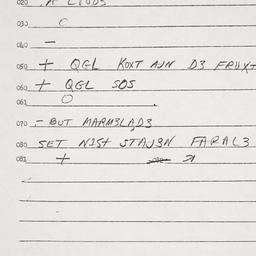 020
030 O
040 –
050 + QGL KOXT AJN D3 FRUXT
060 + QGL SOS
061 O .
070 – BUT MARM3LAD3
080 SET NIST STAJ3N FARAL3
081 +